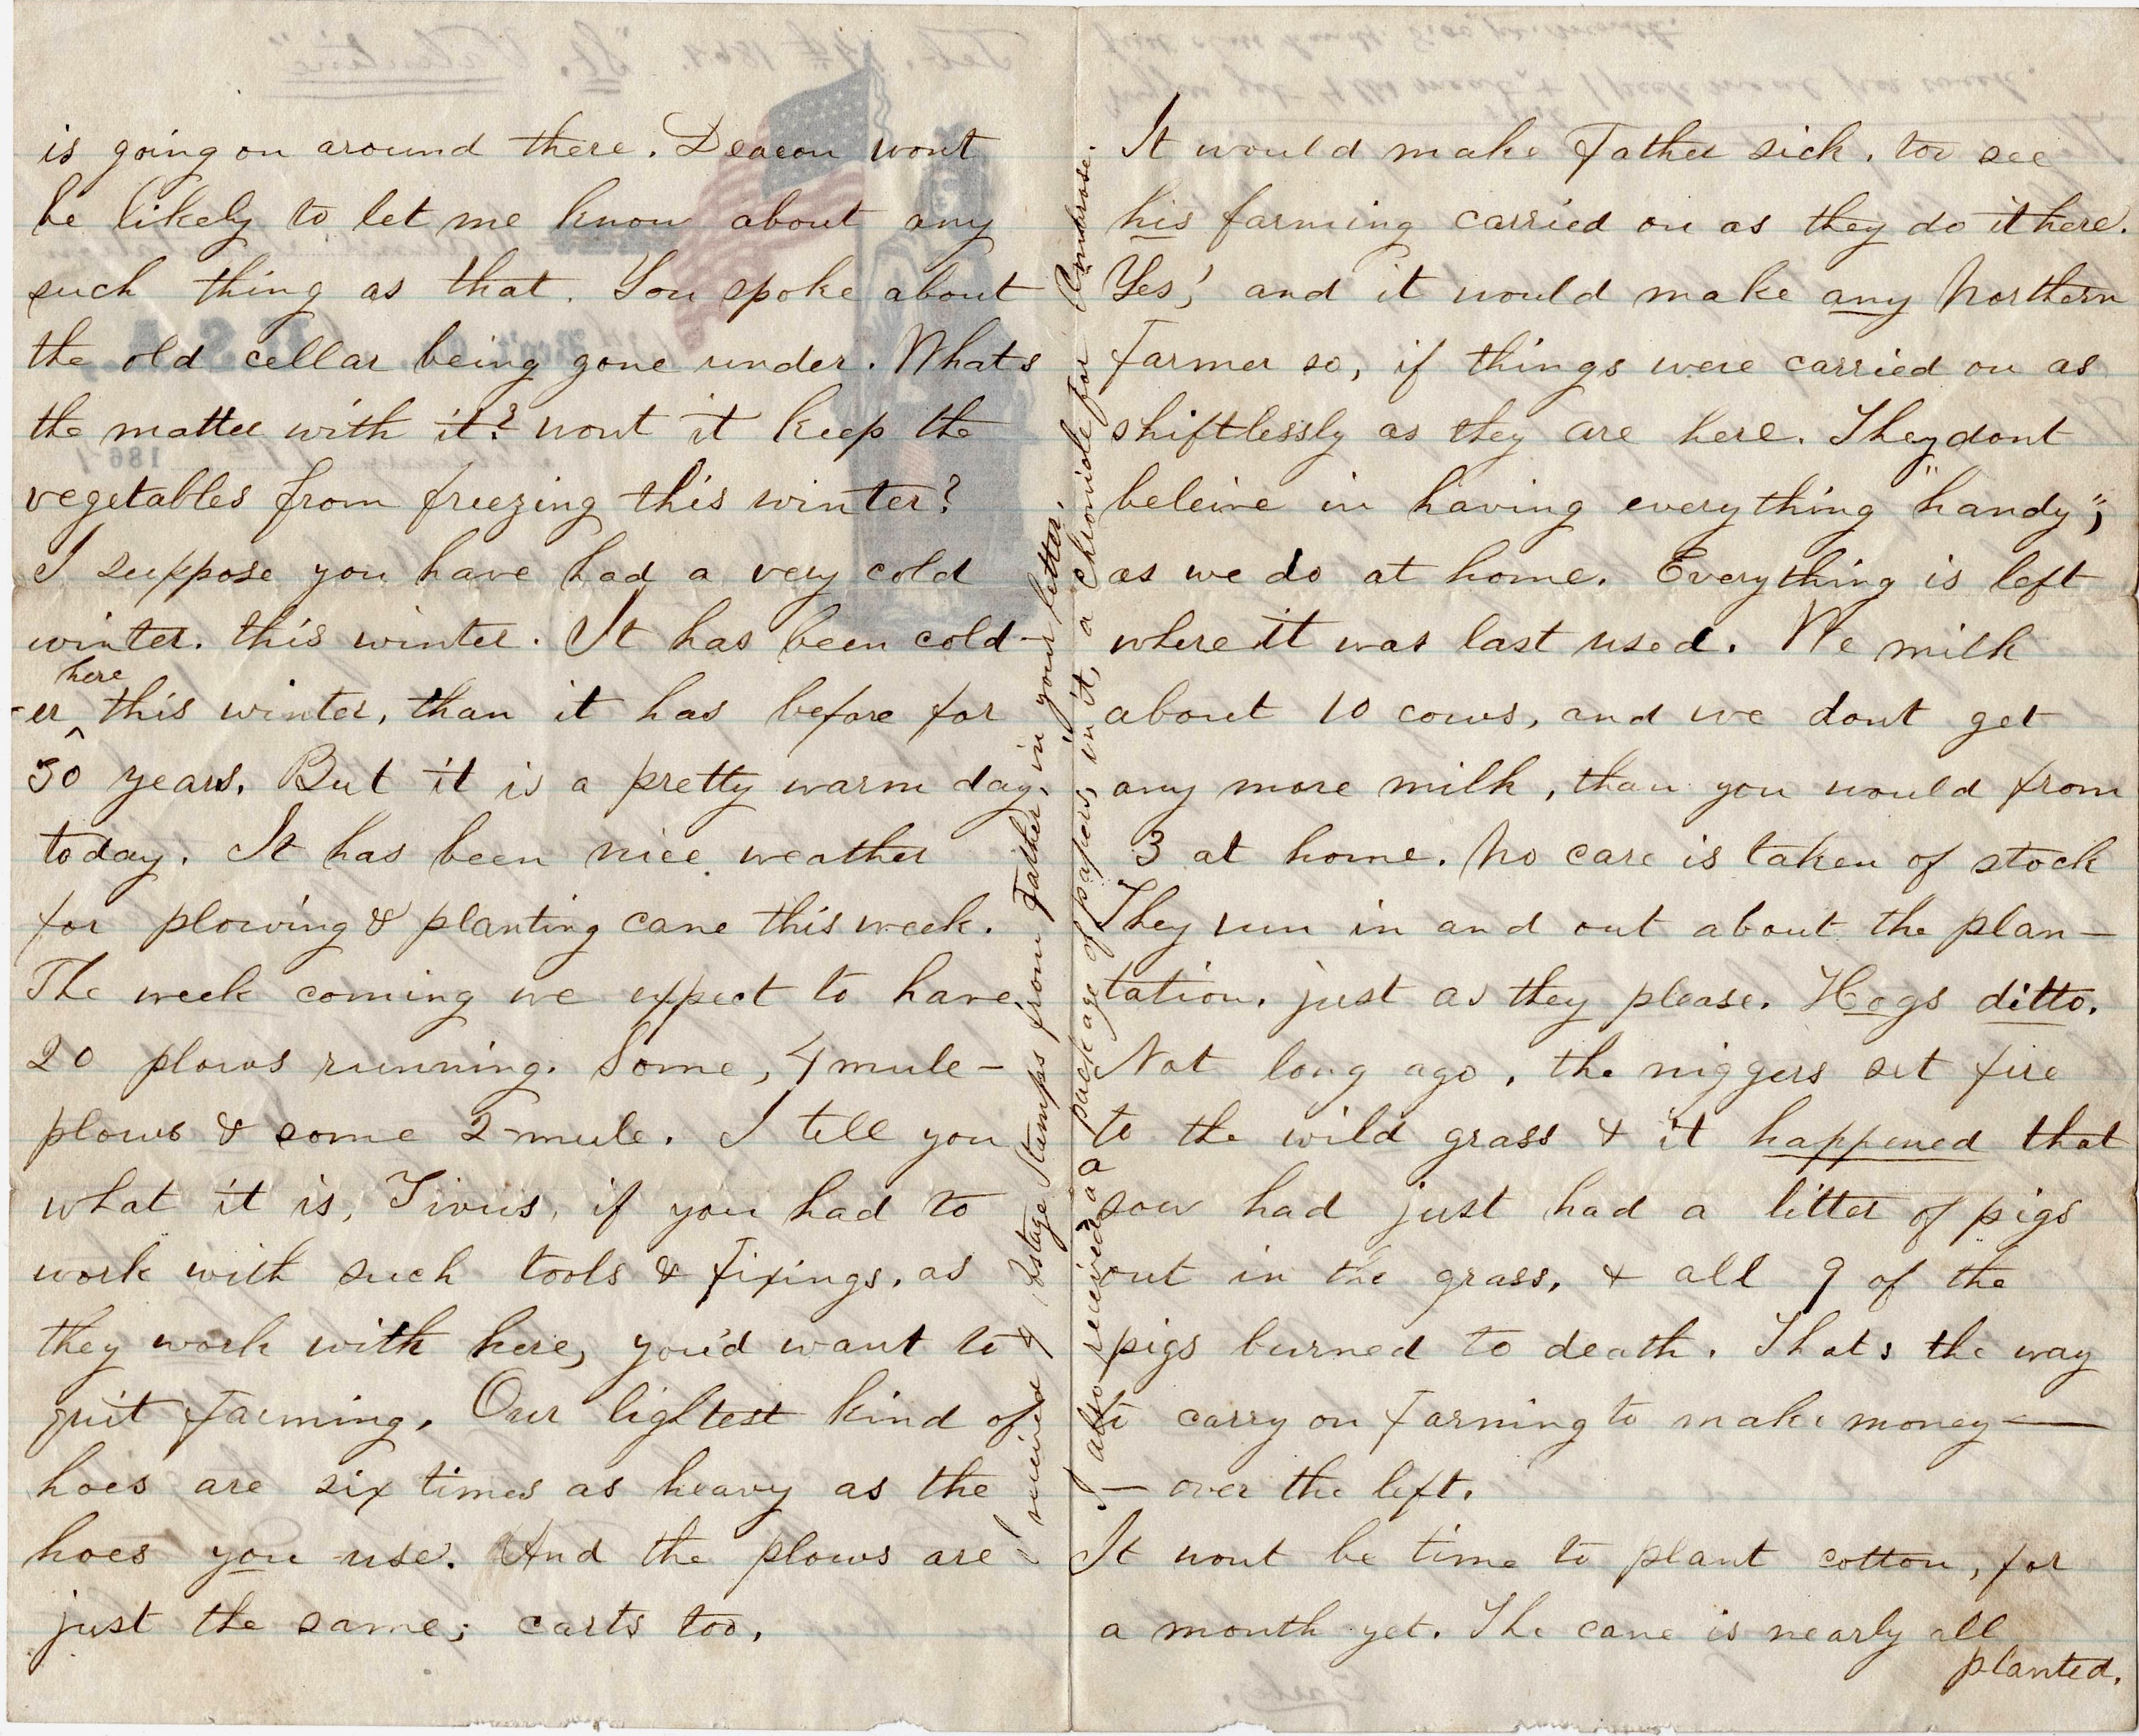 is going on around there. Deacon wont
be likely to let me know about any
such thing as that. You spoke about
the old cellar being gone under. Whats
the matter with it? wont it keep the
vegetables from freezing this winter?
I suppose you have had a very cold
winter. this winter. It has been cold-
here
-er ^ this winter, than it has before for
50 years. But it is a pretty warm day,
today. It has been nice weather
for plowing & planting cane this week.
The week coming we expect to have
20 plows running. Some, 4 mule-
plows & some 2-mule. I tell you
what it is, Tirus, if you had to
work with such tools & fixings, as
they work with here, you'd want to
quit farming. Our lightest kind of
hoes are six times as heavy as the
hoes you use. And the plows are
just the same; carts too.
I received 4 Postage Stamps from Father, in your letter.
I also received a package of papers, in it, a Chronicle for Ambrose.
It would make Father sick, too see
his farming carried on as they do it here.
Yes, and it would make any Northern
Farmer so, if things were carried on as
shiftlessly as they are here. They dont
beleive in having everything "handy";
as we do at home. Everything is left
where it was last used. We milk
about 10 cows, and we dont get
any more milk, than you would from
3 at home. No care is taken of stock
They run in and out about the plan-
tation, just as they please. Hogs ditto.
Not long ago, the niggers set fire
to the wild grass & it happened that
a sow had just had a litter of pigs
out in the grass, & all 9 of the
pigs burned to death. Thats the way
to carry on farming to make money —
— over the left.
It wont be time to plant cotton, for
a month yet. The cane is nearly all
planted.